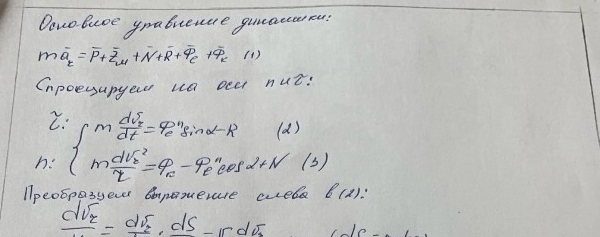 Основное уравнение динамики:
mā_r = P̄ + Z̄_м + N̄ + R̄ + Φ̄_e + Φ̄_к (1)
Спроецируем на оси n и τ:
τ: { m dv_r/dt = Φ_e^n sinα - R (2)
n: { m dv_r²/r = Φ_к - Φ_e^n cosα + N (3)
Преобразуем выражение слева в (2):
dv_r = dv_r · dS = v dv_r (dS =